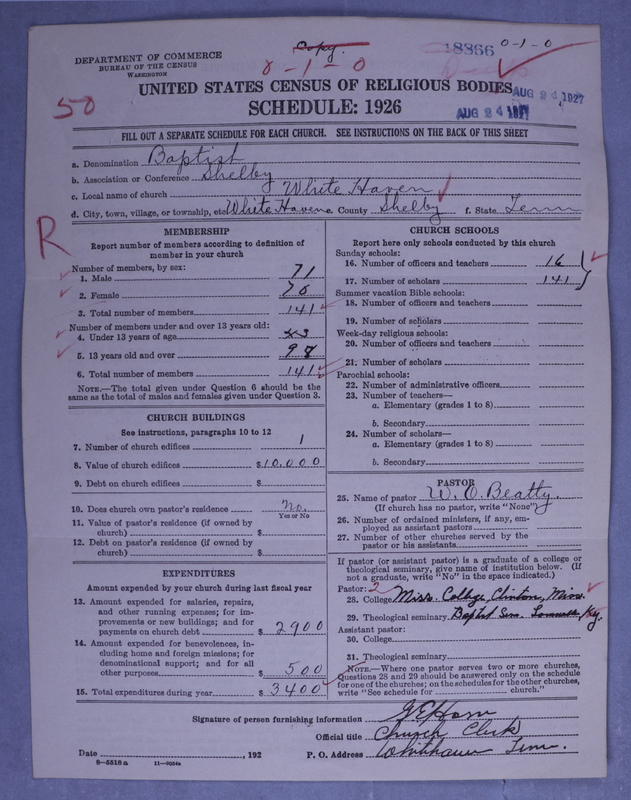 Copy.
18866 0-1-0
DEPARTMENT OF COMMERCE
BUREAU OF THE CENSUS
WASHINGTON
8-1-0
UNITED STATES CENSUS OF RELIGIOUS BODIES
AUG 24 1927
50
SCHEDULE: 1926
AUG 24 1927
FILL OUT A SEPARATE SCHEDULE FOR EACH CHURCH. SEE INSTRUCTIONS ON THE BACK OF THIS SHEET
a. Denomination Baptist
b. Association or Conference Shelby
c. Local name of church White Haven
d. City, town, village, or township, etc. White Haven e. County Shelby f. State Tenn
R
MEMBERSHIP
Report number of members according to definition of
member in your church
Number of members, by sex:
1. Male 71
2. Female 70
3. Total number of members 141
Number of members under and over 13 years old:
4. Under 13 years of age 43
5. 13 years old and over 98
6. Total number of members 141
NOTE.—The total given under Question 6 should be
same as the total of males and females given under Question 3.
CHURCH BUILDINGS
See instructions, paragraphs 10 to 12
7. Number of church edifices 1
8. Value of church edifices $10,000
9. Debt on church edifices $
10. Does church own pastor's residence No.
Yes or No
11. Value of pastor's residence (if owned by
church) $
12. Debt on pastor's residence (if owned by
church) $
EXPENDITURES
Amount expended by church during last fiscal year
13. Amount expended for salaries, repairs,
and other running expenses; for im-
provements or new buildings; and for
payments on church debt $ 2900
14. Amount expended for benevolences, in-
cluding home and foreign missions; for
denominational support; and for all
other purposes $ 500
15. Total expenditures during year $ 3400
CHURCH SCHOOLS
Report here only schools conducted by this church
Sunday schools:
16. Number of officers and teachers 16
17. Number of scholars 141
Summer vacation Bible schools:
18. Number of officers and teachers
19. Number of scholars
Week-day religious schools:
20. Number of officers and teachers
21. Number of scholars
Parochial schools:
22. Number of administrative officers
23. Number of teachers—
a. Elementary (grades 1 to 8)
b. Secondary
24. Number of scholars—
a. Elementary (grades 1 to 8)
b. Secondary
PASTOR
25. Name of pastor W. O. Beatty.
(If church has no pastor, write "None")
26. Number of ordained ministers, if any, em-
ployed as assistant pastors
27. Number of other churches served by the
pastor or his assistants
If pastor (or assistant pastor) is a graduate of a college or
theological seminary, give name of institution below. (If
not a graduate, write "No" in the space indicated.)
Pastor: 2
28. College Miss. College, Clinton, Miss.
29. Theological seminary Baptist Sem. Louisville Ky.
Assistant pastor:
30. College
31. Theological seminary
NOTE.—Where one pastor serves two or more churches,
Questions 28 and 29 should be answered only on the schedule
for one of the churches; on the schedules for the other churches,
write "See schedule for church."
Signature of person furnishing information
Official title Church Clerk
Date , 192 P. O. Address Whithaven Tenn.
8-5518 a 11-9034a